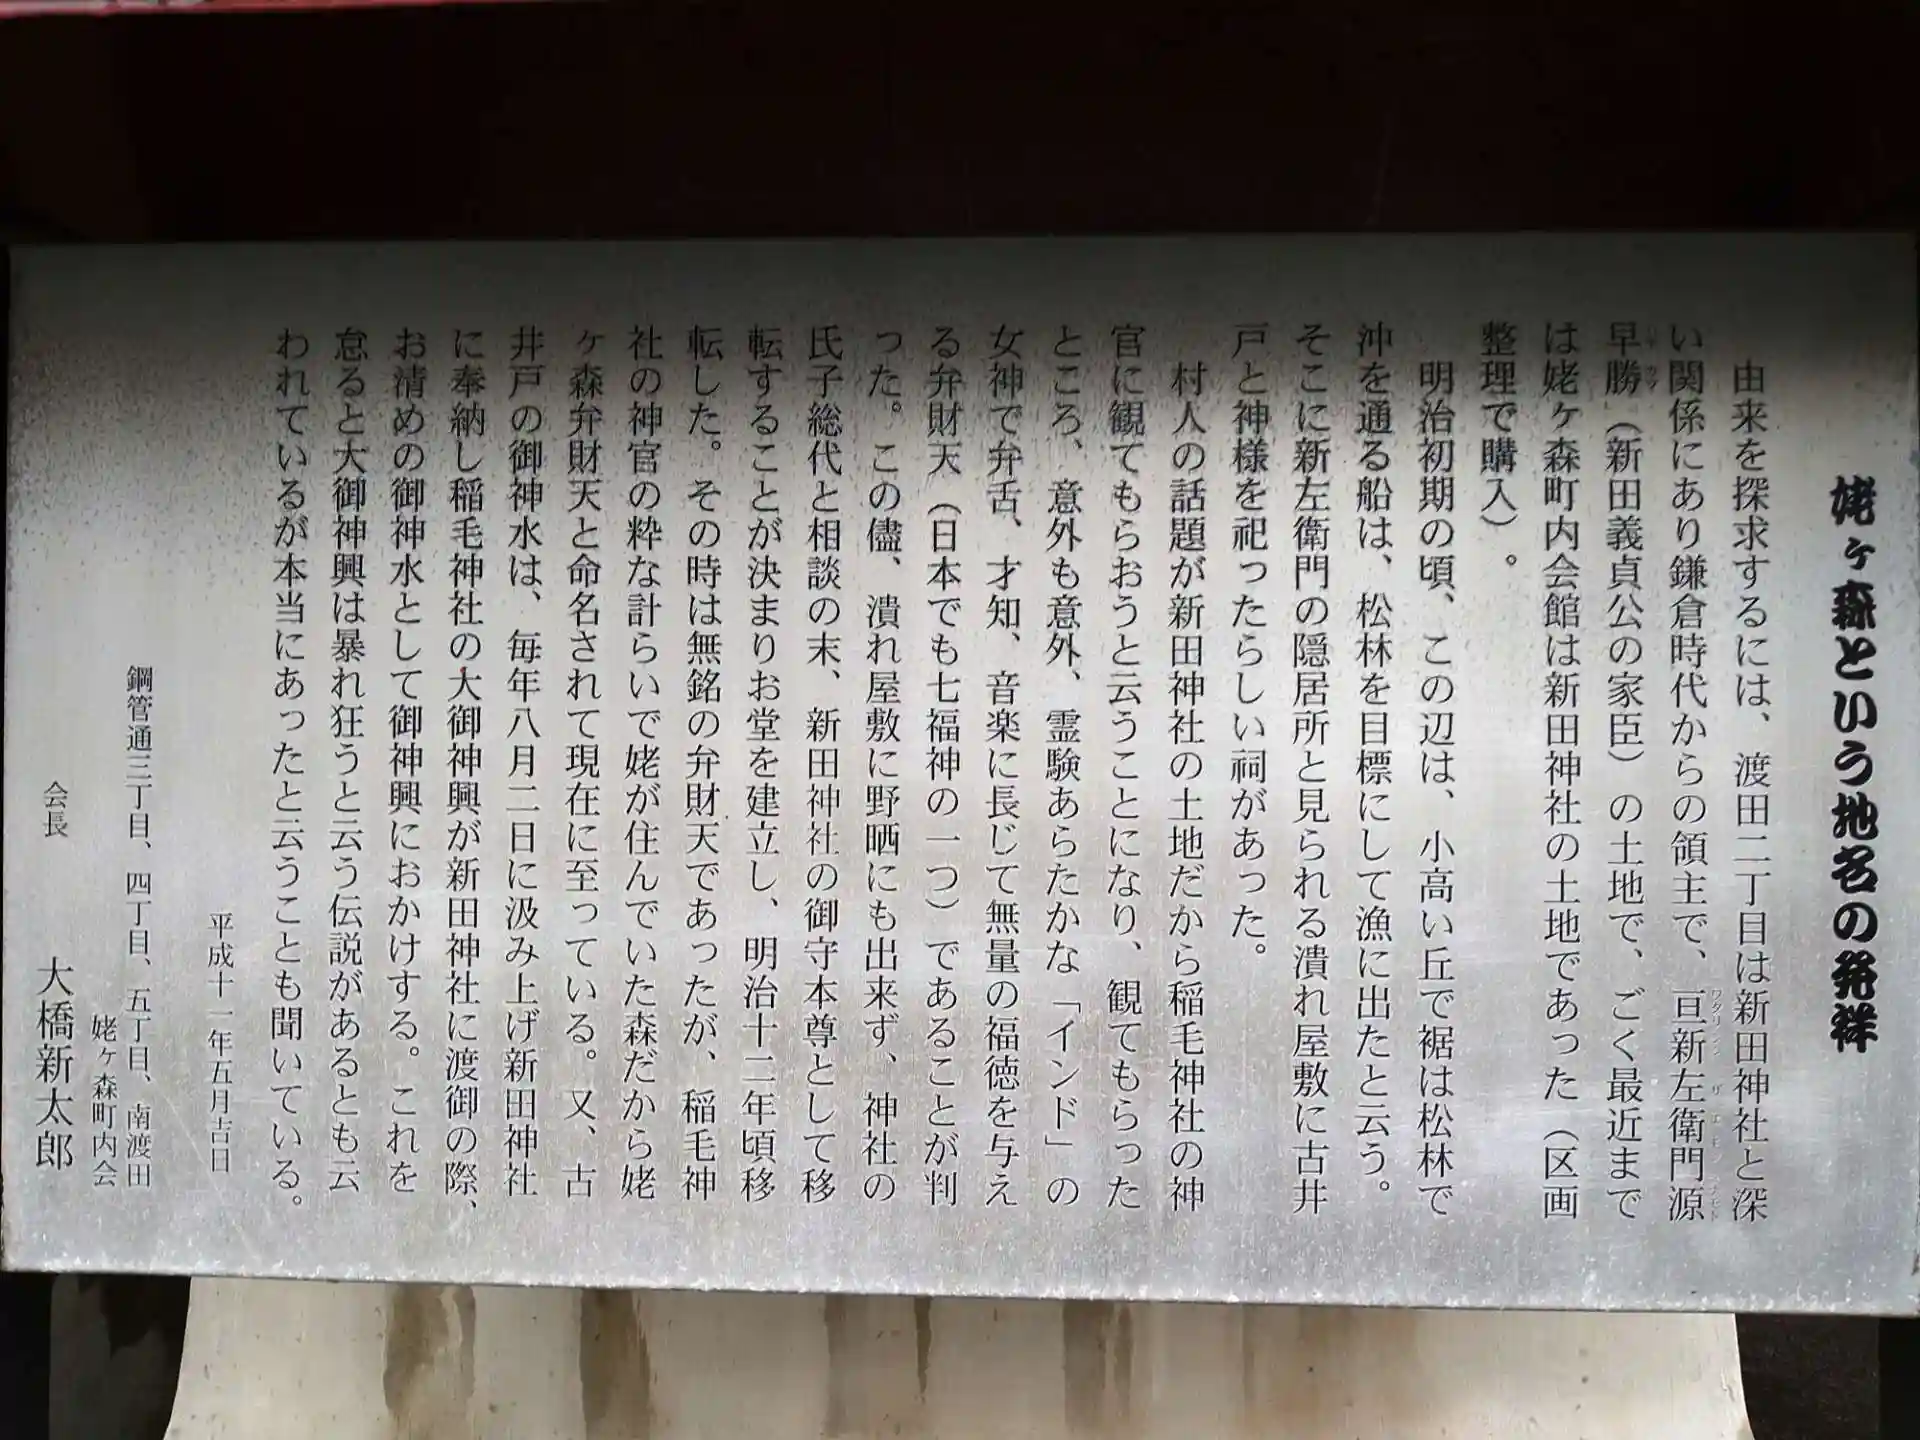 姥ヶ森という地名の発祥
由来を探求するには、渡田二丁目は新田神社と深
い関係にあり鎌倉時代からの領主で、亘新左衛門源
早勝(新田義貞公の家臣)の土地で、ごく最近まで
は姥ヶ森町内会館は新田神社の土地であった(区画
整理で購入)。
明治初期の頃、この辺は、小高い丘で裾は松林で
沖を通る船は、松林を目標にして漁に出たと云う。
そこに新左衛門の隠居所と見られる潰れ屋敷に古井
戸と神様を祀ったらしい祠があった。
村人の話題が新田神社の土地だから稲毛神社の神
官に観てもらおうと云うことになり、観てもらった
ところ、意外も意外、霊験あらたかな「インド」の
女神で弁舌、才知、音楽に長じて無量の福徳を与え
る弁財天(日本でも七福神の一つ)であることが判
った。この儘、潰れ屋敷に野晒にも出来ず、神社の
氏子総代と相談の末、新田神社の御守本尊として移
転することが決まりお堂を建立し、明治十二年頃移
転した。その時は無銘の弁財天であったが、稲毛神
社の神官の粋な計らいで姥が住んでいた森だから姥
ヶ森弁財天と命名されて現在に至っている。又、古
井戸の御神水は、毎年八月二日に汲み上げ新田神社
に奉納し稲毛神社の大御神興が新田神社に渡御の際、
お清めの御神水として御神興におかけする。これを
怠ると大御神興は暴れ狂うと云う伝説があるとも云
われているが本当にあったと云うことも聞いている。
平成十一年五月吉日
鋼管通三丁目、四丁目、五丁目、南渡田
姥ヶ森町内会
会長 大橋新太郎